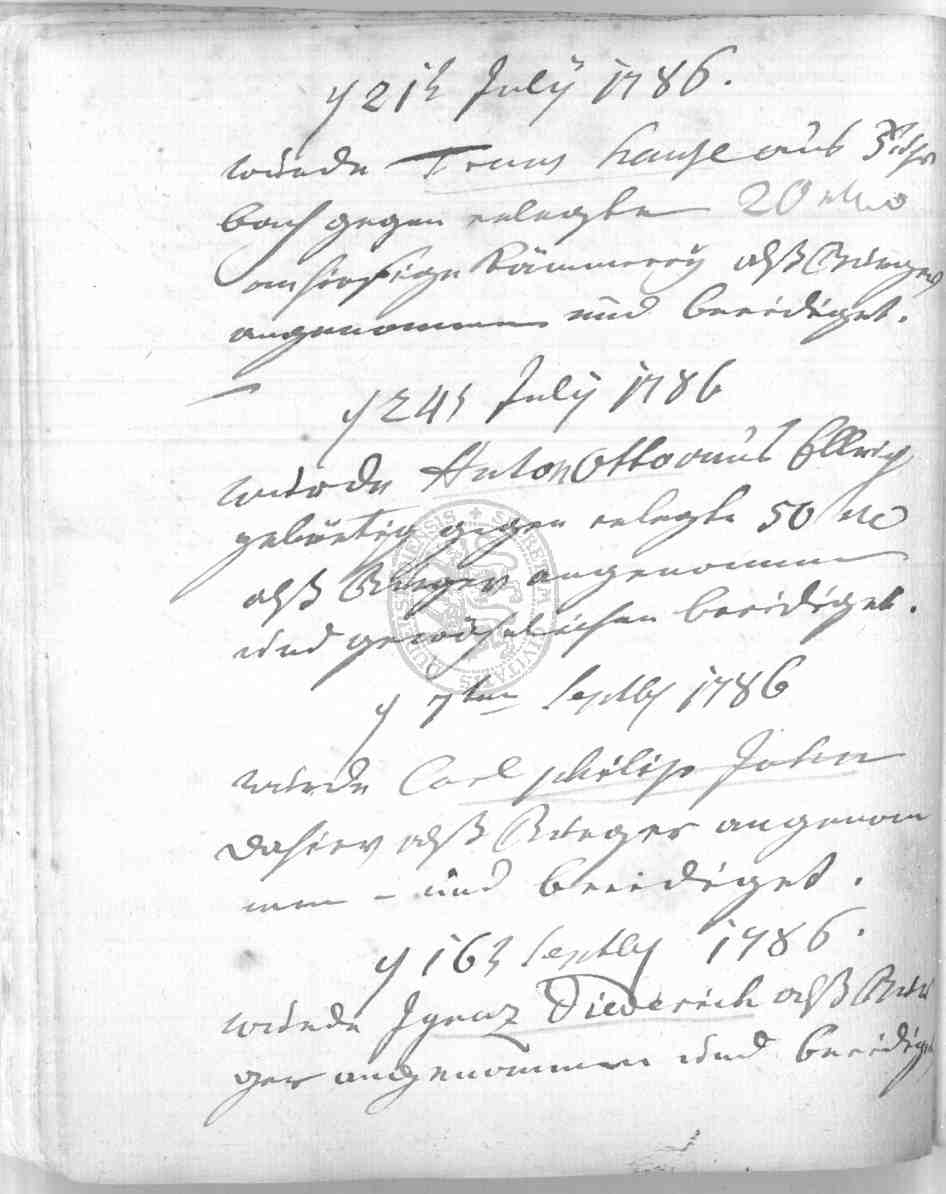 d 21t July 1786.
wurde Franz Hause aus
bach gegen erlegte 20
an hiesige Kämmerey alß Bürger
angenommen und beeidiget.
d 24t July 1786
wurde Anton Otto aus Ellrich
gebürtig gegen erlegte 50
alß Burger angenommen
und gewöhnlichen beeidiget.
d 7ten Septbr 1786
wurde Carl philip John
dahier alß Burger angenom
men - und beeidiget.
d 16t Septbr 1786.
wurde Ignaz Diederich alß Bur
ger angenommen und beeidig